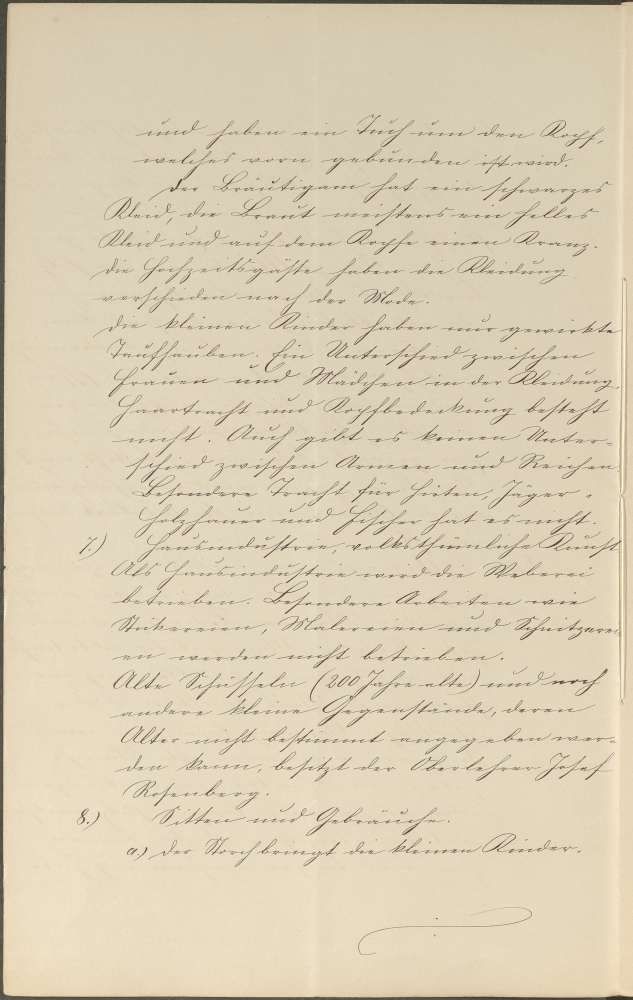 und haben ein Tuch um den Kopf,
welches vorn gebunden ist wird.
Der Bräutigam hat ein schwarzes
Kleid, die Braut meistens ein helles
Kleid und auf dem Kopfe einen Kranz.
Die Hochzeitsgäste haben die Kleidung
verschieden nach der Mode.
Die kleinen Kinder haben nur gewirkte
Taufhauben. Ein Unterschied zwischen
Frauen und Mädchen in der Kleidung,
Haartracht und Kopfbedeckung besteht
nicht. Auch gibt es keinen Unter-
schied zwischen Armen und Reichen.
Besondere Tracht für Hirten, Jäger,
Holzhauer und Fischer hat es nicht.
7.) Hausindustrie, volksthümliche Kunst
Als Hausindustrie wird die Weberei
betrieben. Besondere Arbeiten wie
Strikereien, Malereien und Schnitzerei-
en werden nicht betrieben.
Alte Schüsseln (200 Jahre alte) und noch
andere kleine Gegenstände, deren
Alter nicht bestimmt angegeben wer-
den kann, besitzt der Oberlehrer Josef
Rosenberg.
8.) Sitten und Gebräuche.
a.) Der Storch bringt die kleinen Kinder.